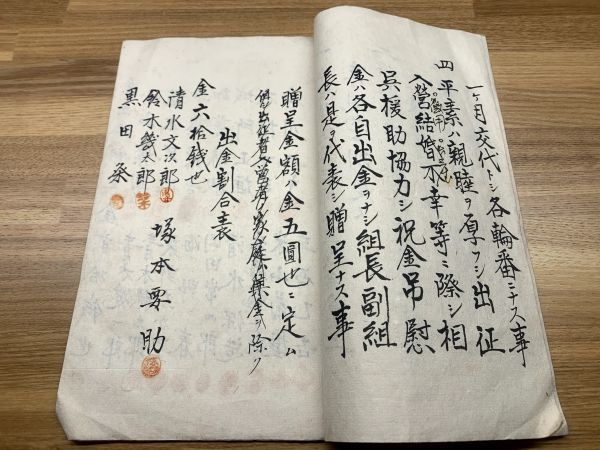 一ヶ月交代トシ各輪番ニナス事
四 平素ハ親睦ヲ原フシ出征
入営結婚不幸等ニ際シ相
呉援助協力シ祝金吊慰
金ハ各自出金ヲナシ組長副組
長ハ是ヲ代表シ贈呈ナス事
贈呈金額ハ金五圓也ニ定ム
但シ出征者入営者ノ家庭ハ集金ヲ除ク
出金割合表
金六拾銭也
清水文次郎
塚本要助
鈴木幾太郎
黒田粂